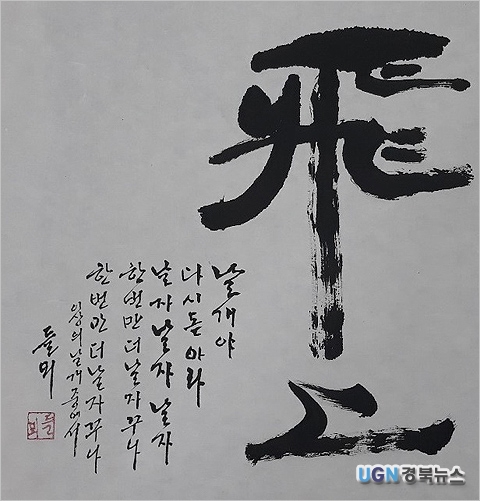 飛上
날개야
다시 돋아라
날자 날자 날자
한번만 더 날자꾸나
한번만 더 날자꾸나
이상의 날개 중에서
들뫼
UGN경북뉴스